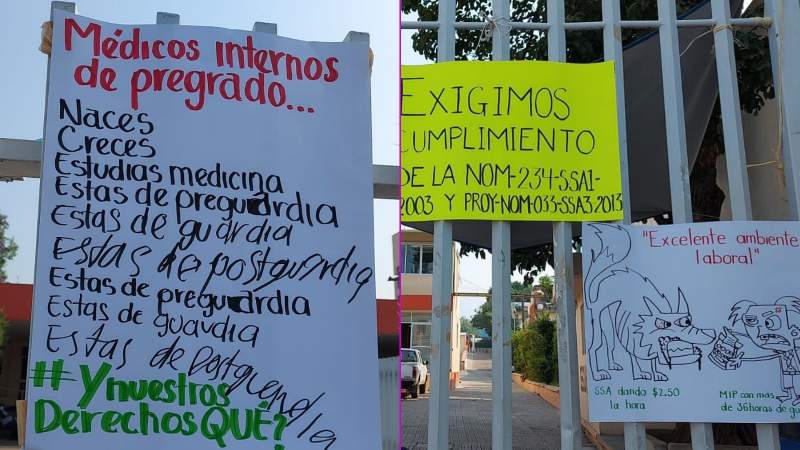 Médicos internos
de pregrado...
Naces
Creces
Estudias medicina
Estas de preguardia
Estas de guardia
Estas de postguardia
Estas de preguardia
Estas de guardia
Estas de postguardia
#Ynuestros
Derechos QUÉ?
EXIGIMOS
CUMPLIMIENTO
DE LA NOM-234-SSA1-
2003 Y PROY-NOM-033-SSA3-2013
"Excelente ambiente
laboral"
SSA dando $2.50
la hora
MIP con mas
de 36 horas de